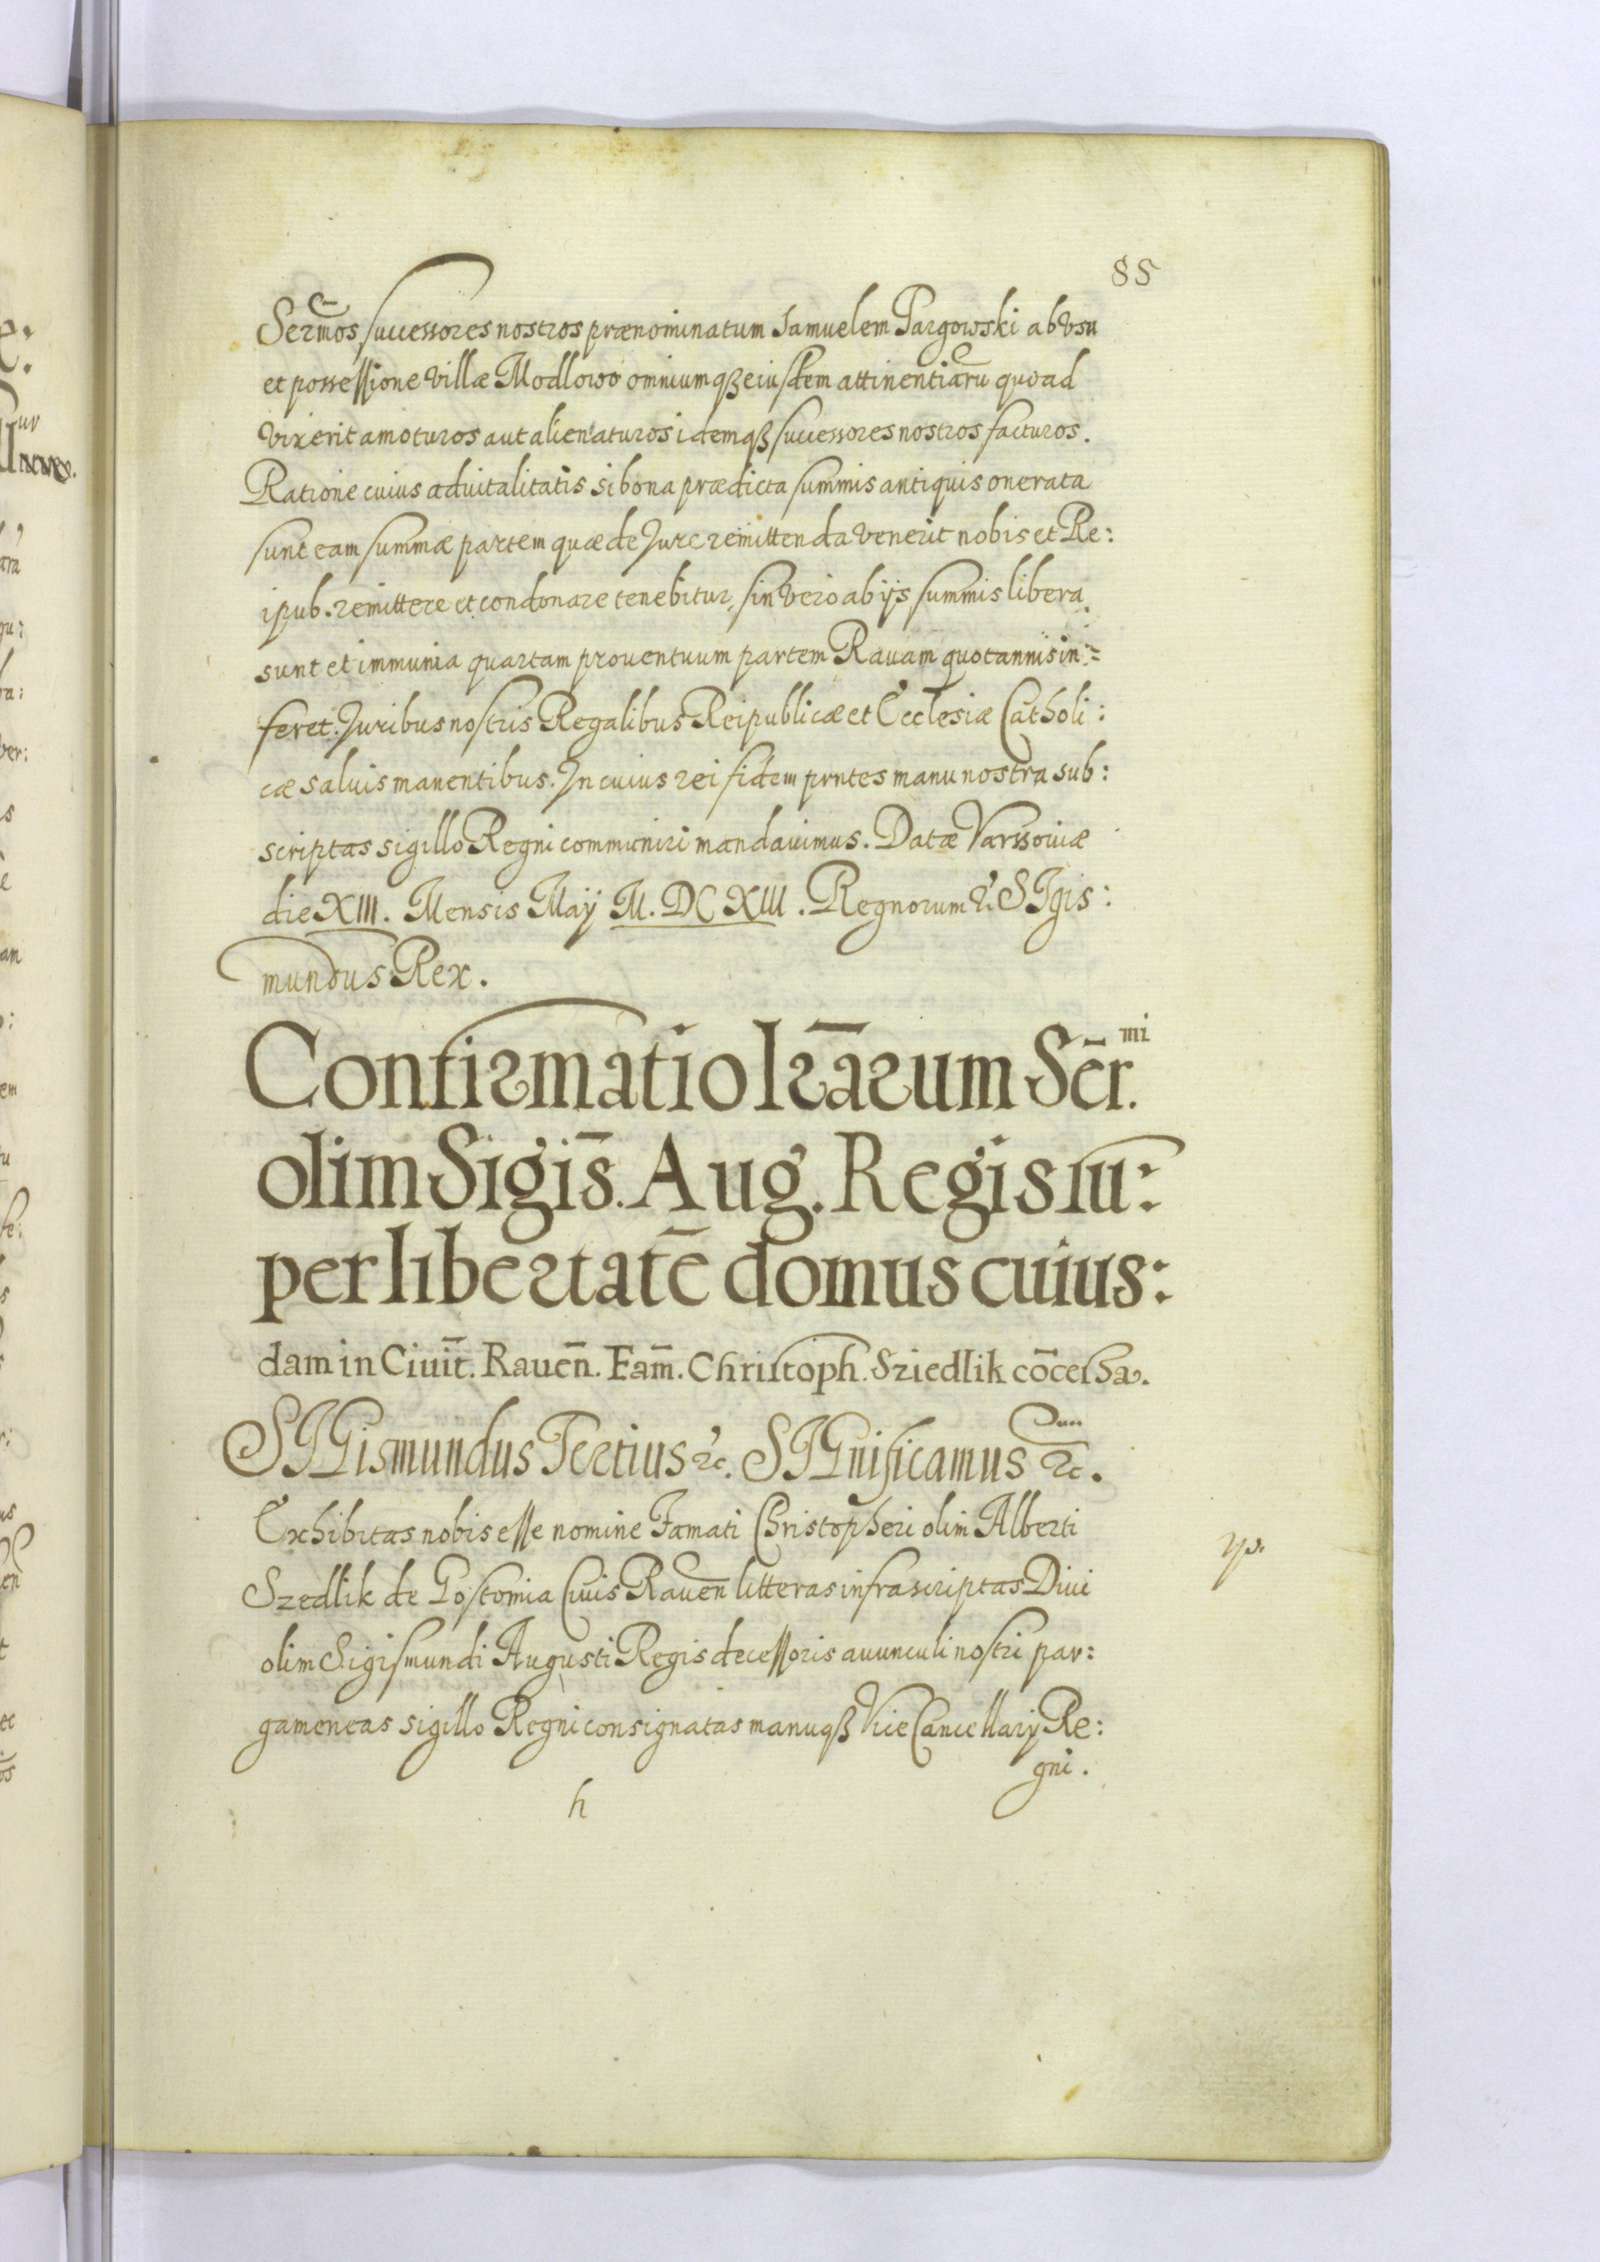 85
Serm̃os successores nostros prænominatum Samuelem Pargowski ab vsu
et possessione villæ Modlowo omniumqꝫ eiusdem attinentiarũ quoad
vixerit amoturos aut alienaturos idemqꝫ successores nostros facturos.
Ratione cuius aduitalitatis si bona prædicta summis antiquis onerata
sunt eam summæ partem quæ de Jure remittenda venerit nobis et Re:
ipub. remittere et condonare tenebitur, sin vero ab ijs summis libera
sunt et immunia quartam prouentuum partem Rauam quotannis in=
feret. Juribus nostris Regalibus Reipublicæ et Ecclesiæ Catholi:
cæ saluis manentibus. In cuius rei fidem prntes manu nostra sub:
scriptas sigillo Regni communiri mandauimus. Datæ Varssouiæ
die XIII. Mensis Maÿ M. DC XIII. Regnorum &. SIgis:
mundus Rex.
Confirmatio lr̃arum Ser̃.mi
olim Sigis̃. Aug. Regis su:
per libertatẽ domus cuius:
dam in Ciuit̃. Raueñ. Fam̃. Christoph. Sziedlik cõcessa.
SIGismundus Tertius &c. SIGnificamus &c.
Exhibitas nobis esse nomine Famati Christopheri olim Alberti
Szedlik de Postomia Ciuis Raueñ litteras infrascriptas Diui
olim Sigismundi Augusti Regis decessoris auunculi nostri par:
gameneas sigillo Regni consignatas manuqꝫ Vice Cancellarij Re:
gni.
h